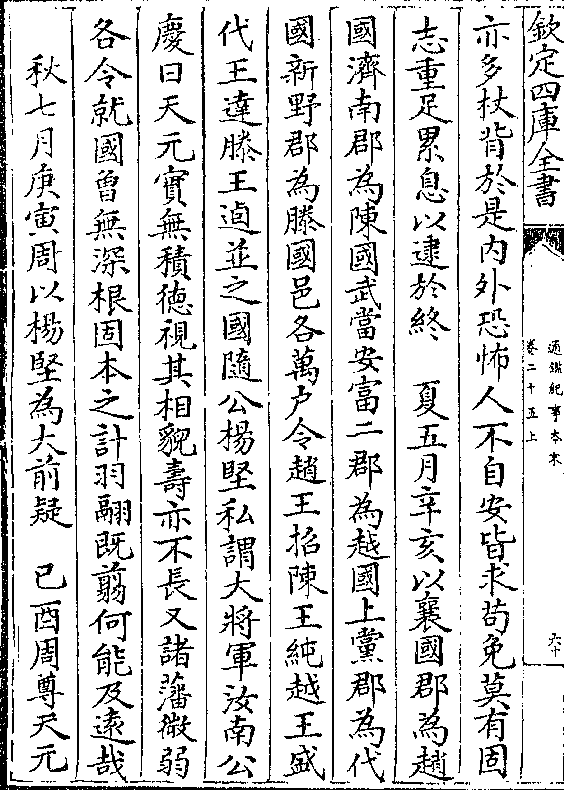 欽定四庫全書
通鑑紀事本末
卷二十五上
六十
亦多杖背於是内外恐怖人不自安皆求苟免莫有固
志重足累息以逮於終　夏五月辛亥以襄國郡為趙
國濟南郡為陳國武當安富二郡為越國上黨郡為代
國新野郡為滕國邑各萬户令趙王招陳王純越王盛
代王達滕王逌並之國隨公楊堅私謂大將軍汝南公
慶曰天元實無積徳視其相貌壽亦不長又諸藩微弱
各令就國曾無深根固本之計羽翮既翦何能及遠哉
秋七月庚寅周以楊堅為大前疑　己酉周尊天元